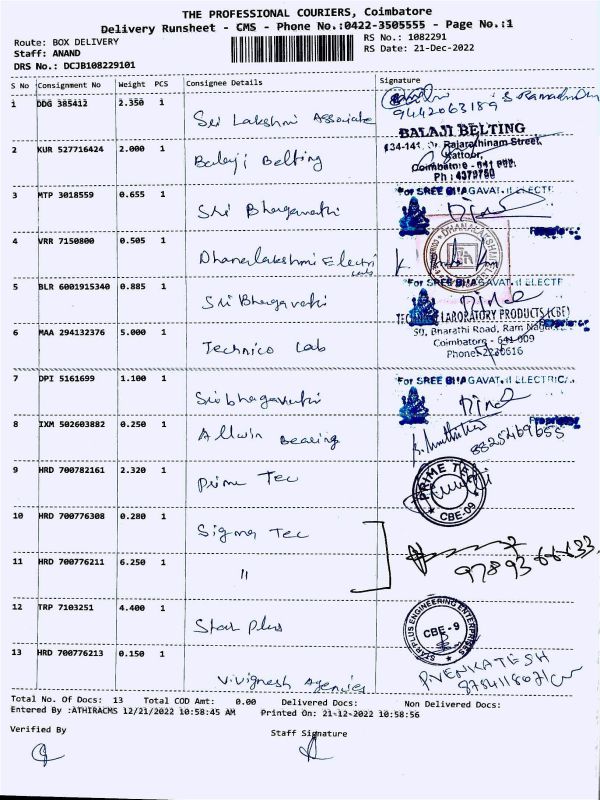 THE PROFESSIONAL COURIERS, Coimbatore
Delivery Runsheet - CMS - Phone No.:0422-3505555 - Page No.:1
Route: BOX DELIVERY
RS No.: 1082291
Staff: ANAND
RS Date: 21-Dec-2022
DRS No.: DCJB108229101
S No Consignment No Weight PCS Consignee Details Signature
1 DDG 385412 2.350 1 Sri Lakshmi Associate
9442063189
2 KUR 527716424 2.000 1 Balaji Belting
BALAJI BELTING
134-141, Dr. Rajarathinam Street,
Kattoor,
Coimbatore - 641 009.
Ph : 4379760
3 MTP 3018559 0.655 1 Sri Bhagavathi
For SREE BHAGAVATHI ELECTR
4 VRR 7150800 0.505 1 Dhanalakshmi Electri
DHANALAKSHMI
5 BLR 6001915340 0.885 1 Sri Bhagavathi
For SREE BHAGAVATHI ELECTR
6 MAA 294132376 5.000 1 Technico Lab
LABORATORY PRODUCTS (CBE)
50, Bharathi Road, Ram Nagar
Coimbatore - 641 009
Phone: 2230616
7 DPI 5161699 1.100 1 Sribhagavathi
For SREE BHAGAVATHI ELECTRICA
Proprietor
8 IXM 502603882 0.250 1 Allwin Bearing
8825469655
9 HRD 700782161 2.320 1 Prime Tec
PRIME TEC
CBE-09
10 HRD 700776308 0.280 1 Sigma Tec
11 HRD 700776211 6.250 1 "
12 TRP 7103251 4.400 1 Star Plus
STAR PLUS ENGINEERING ENTERPRISES
CBE - 9
13 HRD 700776213 0.150 1 Vivignesh Agencies
P.VENKATESH
Total No. Of Docs: 13 Total COD Amt: 0.00 Delivered Docs: Non Delivered Docs:
Entered By :ATHIRACMS 12/21/2022 10:58:45 AM Printed On: 21-12-2022 10:58:56
Verified By
Staff Signature